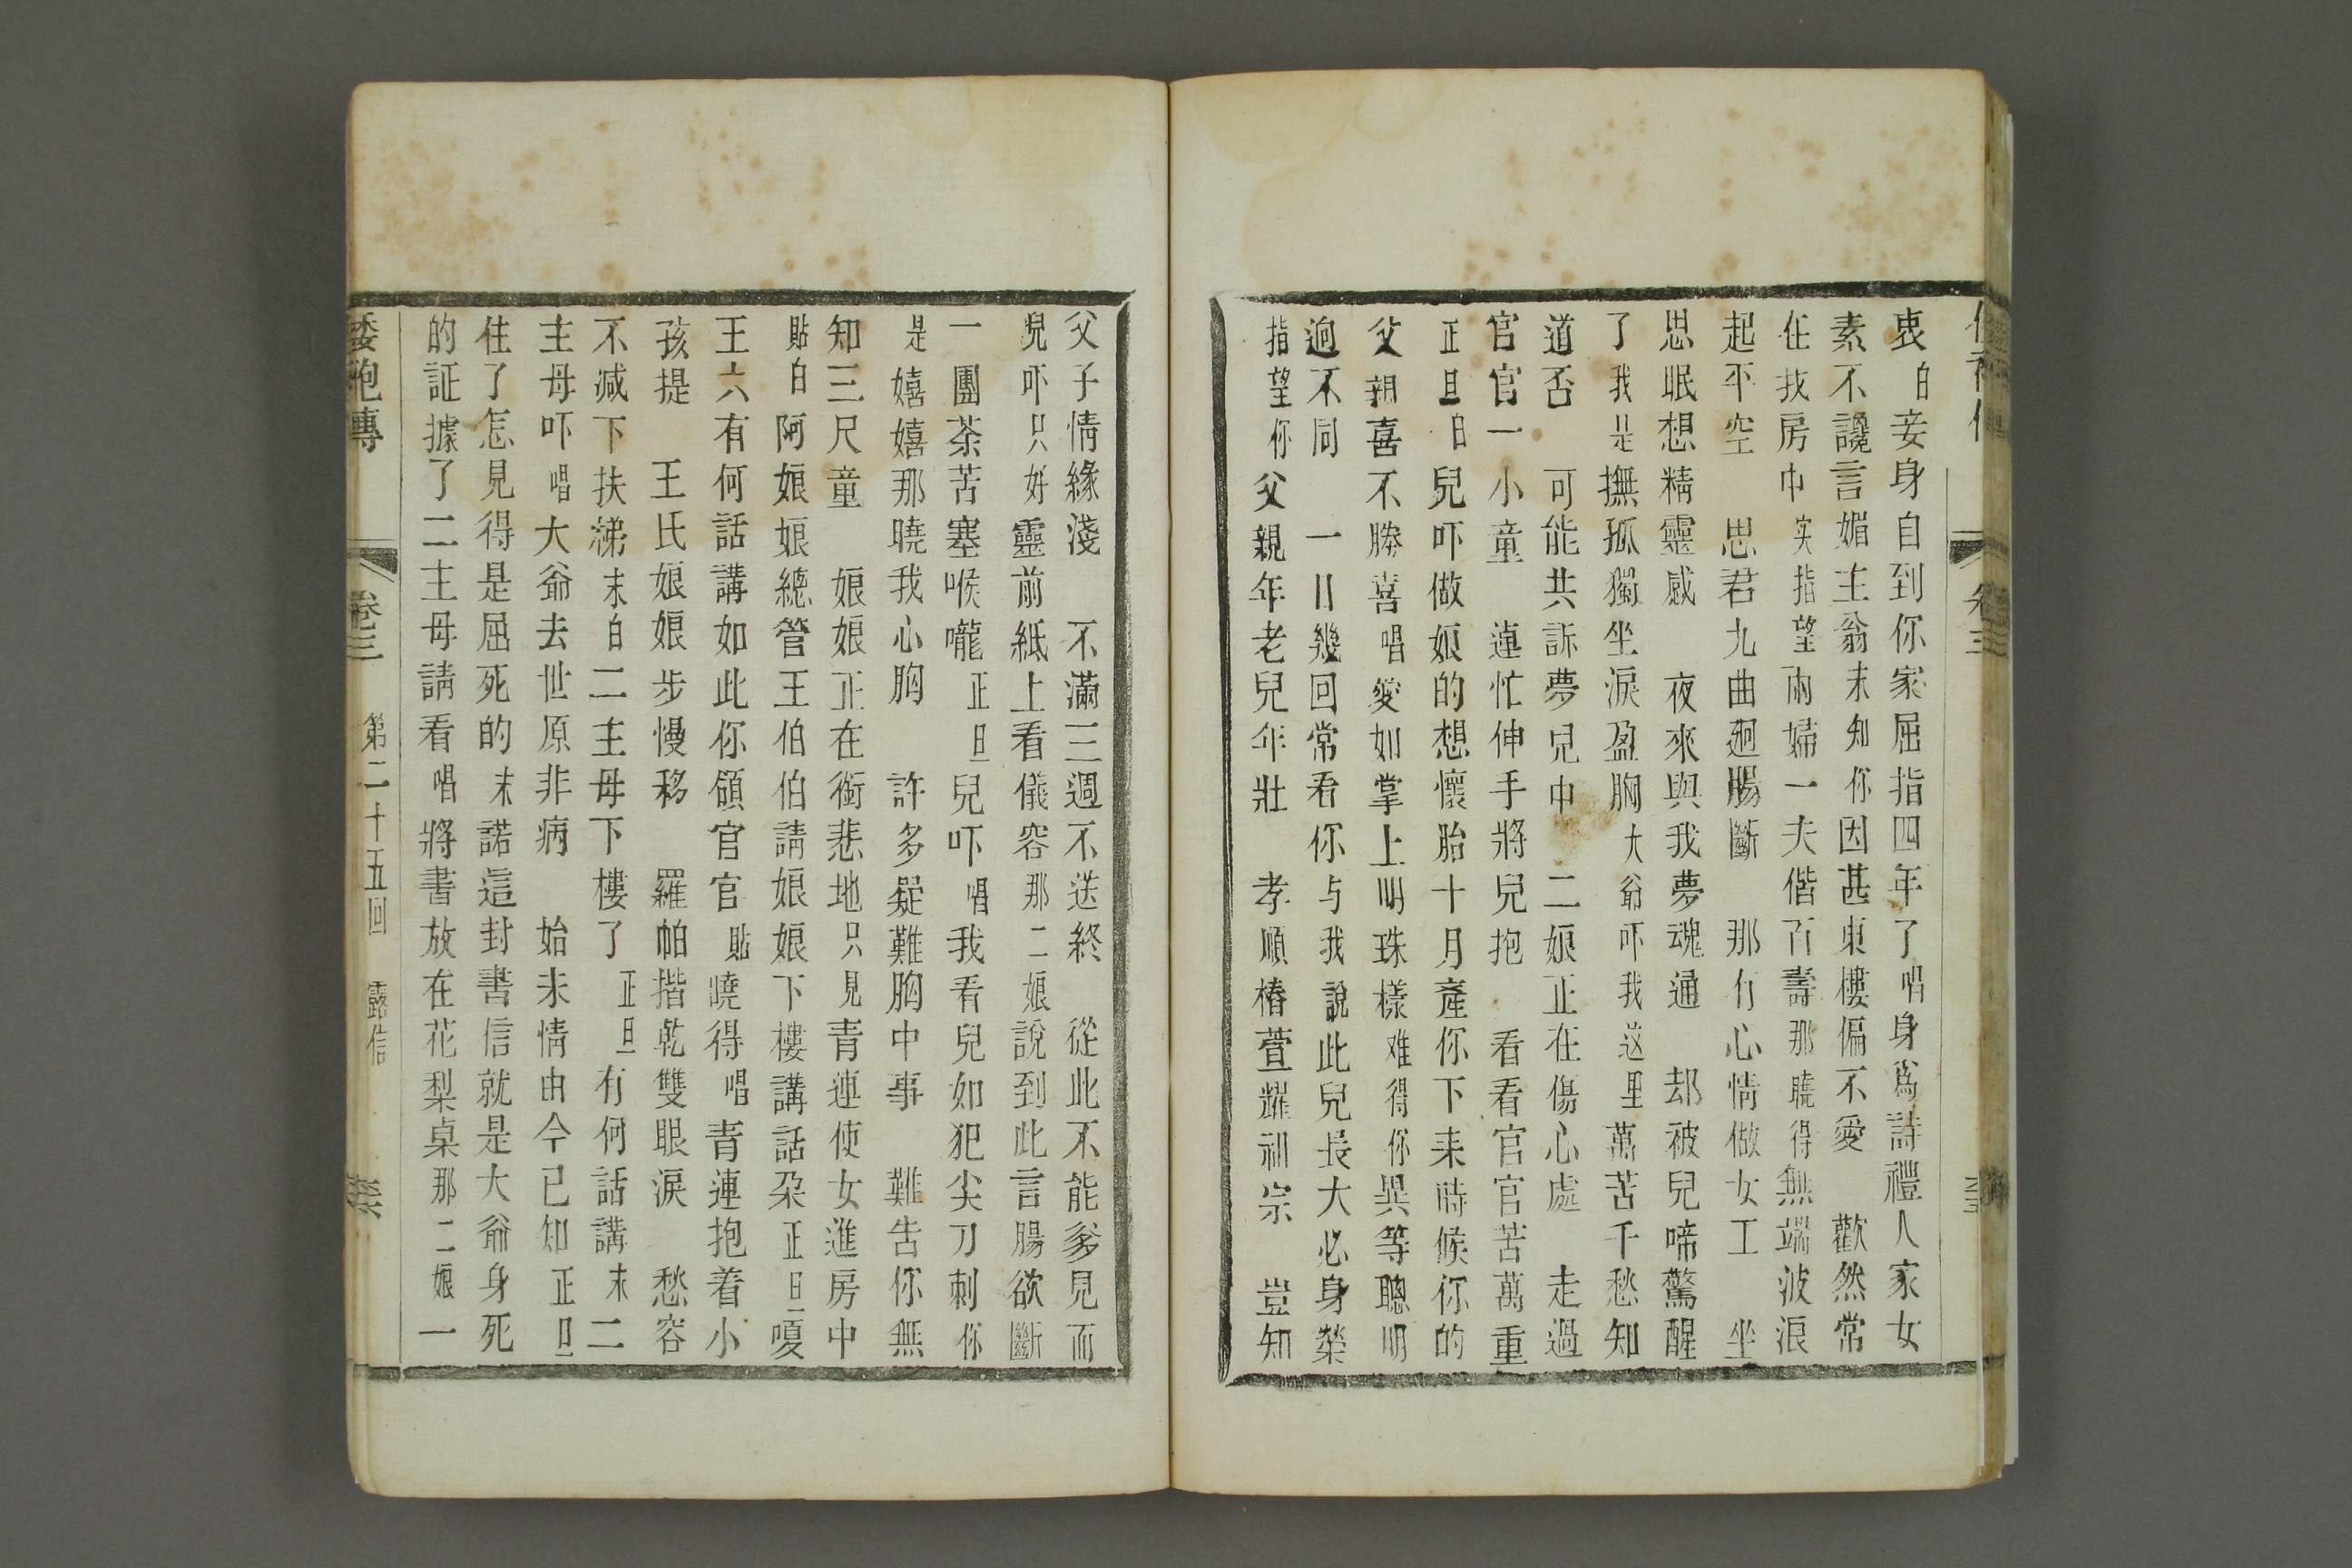 衷白妾身自到你家屈指四年了唱身爲詩禮人家女
素不讒言媚主翁未知你因甚東樓偏不愛 歡然常
在找房中实指望兩婦一夫偕百壽那曉得無端波浪
起平空 思君九曲迴腸斷 那有心情做女工 坐
思眠想精靈感 夜來與我夢魂通 却被兒啼驚醒
了我是撫孤獨坐淚盈胸大爺吓我这里萬苦千愁知
道否 可能共訴夢兒中 二娘正在傷心處 走過
官官一小童 連忙伸手將兒抱 看看官官苦萬重
正旦白兒吓做娘的想懷胎十月產你下来時候你的
父親喜不勝喜唱愛如掌上明珠樣难得你異等聰明
逈不同 一日幾回常看你与我說此兒長大必身榮
指望你父親年老兒年壯 孝順椿萱耀祖宗 豈知
父子情緣淺 不滿三週不送終 從此不能爹見而
兒吓只好靈前紙上看儀容那二娘說到此言腸欲斷
一團茶苦塞喉嚨正旦兒吓唱我看兒如犯尖刀刺你
是嬉嬉那曉我心胸 許多疑難胸中事 難告你無
知三尺童 娘娘正在銜悲地只見青連使女進房中
貼白阿娘娘總管王伯伯請娘娘下樓講話朶正旦嗄
王六有何話講如此你領官官貼曉得唱青連抱着小
孩提 王氏娘娘步慢移 羅帕揩乾雙眼淚 愁容
不减下扶梯末白二主母下樓了正旦有何話講末二
主母吓唱大爺去世原非病 始未情由今已知正旦
住了怎見得是屈死的末諾這封書信就是大爺身死
的証據了二主母請看唱將書放在花梨桌那二娘一
倭袍傳 卷三 第二十五回 露信